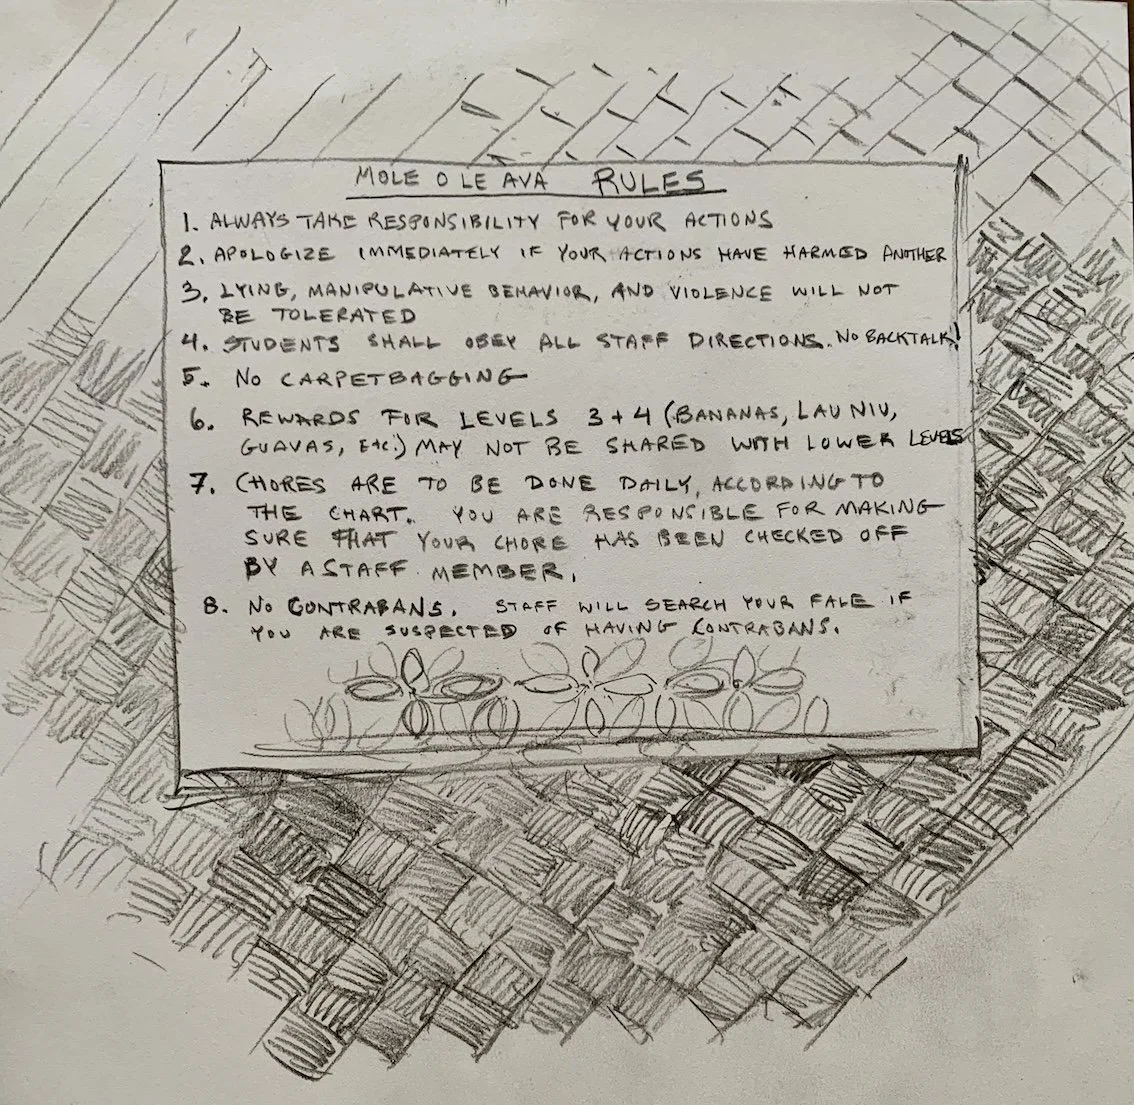 MOLE O LE AVA RULES
1. ALWAYS TAKE RESPONSIBILITY FOR YOUR ACTIONS
2. APOLOGIZE IMMEDIATELY IF YOUR ACTIONS HAVE HARMED ANOTHER
3. LYING, MANIPULATIVE BEHAVIOR, AND VIOLENCE WILL NOT
BE TOLERATED
4. STUDENTS SHALL OBEY ALL STAFF DIRECTIONS. NO BACKTALK!
5. NO CARPETBAGGING
6. REWARDS FOR LEVELS 3 + 4 (BANANAS, LAU NIU,
GUAVAS, ETC.) MAY NOT BE SHARED WITH LOWER LEVELS
7. CHORES ARE TO BE DONE DAILY, ACCORDING TO
THE CHART. YOU ARE RESPONSIBLE FOR MAKING
SURE THAT YOUR CHORE HAS BEEN CHECKED OFF
BY A STAFF MEMBER.
8. NO CONTRABANS. STAFF WILL SEARCH YOUR FALE IF
YOU ARE SUSPECTED OF HAVING CONTRABANS.